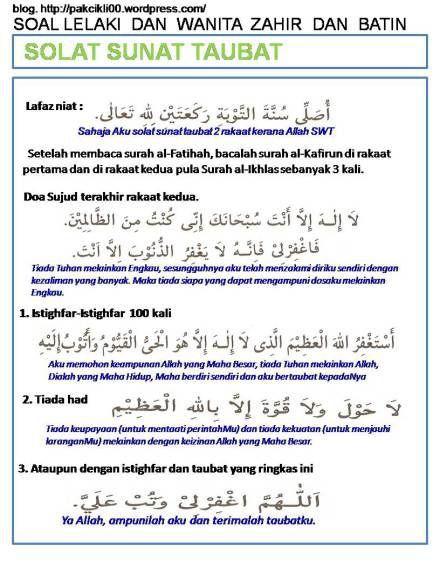 blog. http://pakcikli00.wordpress.com/
SOAL LELAKI DAN WANITA ZAHIR DAN BATIN
SOLAT SUNAT TAUBAT
Lafaz niat :
أُصَلِّى سُنَّةَ التَّوْبَةِ رَكَعَتَيْنِ لِلّٰهِ تَعَالَى.
Sahaja Aku solat sunat taubat 2 rakaat kerana Allah SWT
Setelah membaca surah al-Fatihah, bacalah surah al-Kafirun di rakaat
pertama dan di rakaat kedua pula Surah al-Ikhlas sebanyak 3 kali.
Doa Sujud terakhir rakaat kedua.
لَا إِلٰهَ إِلَّا أَنْتَ سُبْحَانَكَ إِنِّى كُنْتُ مِنَ الظَّالِمِيْنَ.
فَاغْفِرْلِىْ فَإِنَّهُ لَا يَغْفِرُ الذُّنُوْبَ إِلَّا أَنْتَ.
Tiada Tuhan melainkan Engkau, sesungguhnya aku telah menzalami diriku sendiri dengan
kezaliman yang banyak. Maka tiada siapa yang dapat mengampuni dosaku melainkan
Engkau.
1. Istighfar-Istighfar 100 kali
أَسْتَغْفِرُ اللهَ الْعَظِيْمَ الَّذِى لَا إِلٰهَ إِلَّا هُوَ الْحَىُّ الْقَيُّوْمُ وَأَتُوْبُ إِلَيْهِ
Aku memohon keampunan Allah yang Maha Besar, tiada Tuhan melainkan Allah,
Dialah yang Maha Hidup, Maha berdiri sendiri dan aku bertaubat kepadaNya
2. Tiada had
لَا حَوْلَ وَلَا قُوَّةَ إِلَّا بِاللهِ الْعَظِيْمِ
Tiada keupayaan (untuk mentaati perintahMu) dan tiada kekuatan (untuk menjauhi
laranganMu) melainkan dengan keizinan Allah yang Maha Besar.
3. Ataupun dengan istighfar dan taubat yang ringkas ini
اَللّٰهُمَّ اغْفِرْلِىْ وَتُبْ عَلَيَّ.
Ya Allah, ampunilah aku dan terimalah taubatku.